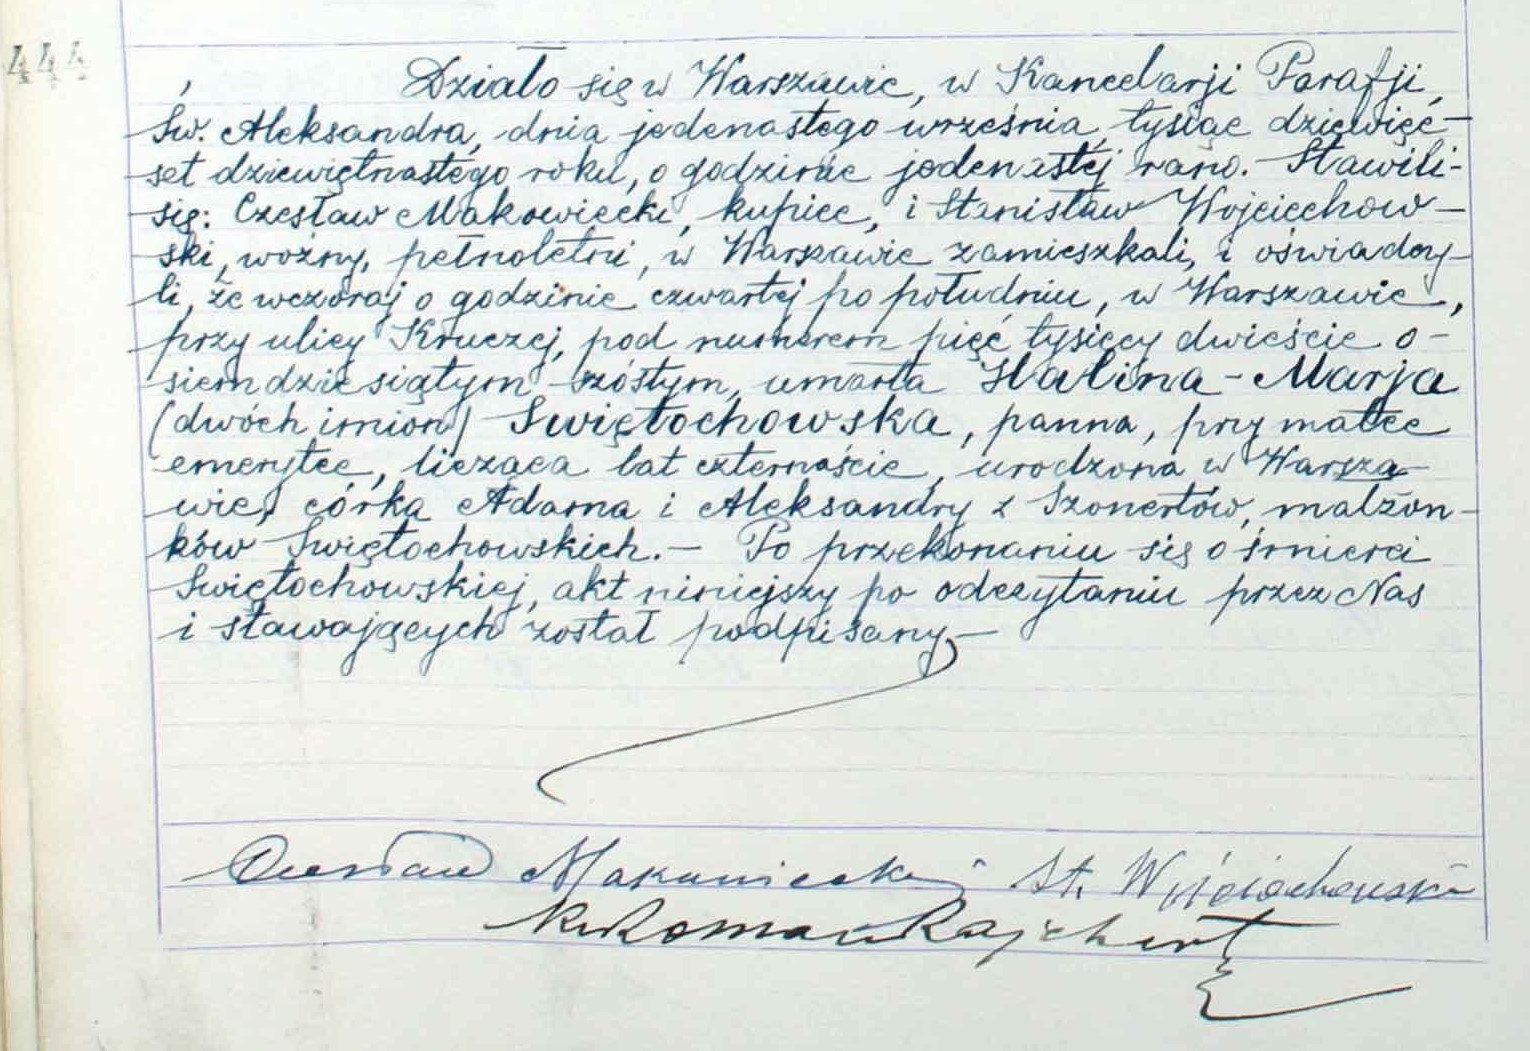 444
Działo się w Warszawie, w Kancelarji Parafji
Św. Aleksandra, dnia jedenastego września tysiąc dziewięć-
set dziewiętnastego roku, o godzinie jedenastej rano. Stawili-
się: Czesław Makowiecki, kupiec, i Stanisław Wojciechow-
ski, woźny, pełnoletni, w Warszawie zamieszkali, i oświadczy-
li, że wczoraj o godzinie czwartej po południu, w Warszawie,
przy ulicy Kruczej, pod numerem pięć tysięcy dwieście o-
siemdziesiątym szóstym, umarła Halina-Marja
(dwóch imion) Swiętochowska, panna, przy matce
emerytce, licząca lat czternaście, urodzona w Warsza-
wie, córka Adama i Aleksandry z Szonertów, małżon-
ków Swiętochowskich.- Po przekonaniu się o śmierci
Swiętochowskiej, akt niniejszy po odczytaniu przez Nas
i stawających został podpisany.-
Czesław Makowiecki St. Wojciechowski
X. Roman Rajchert